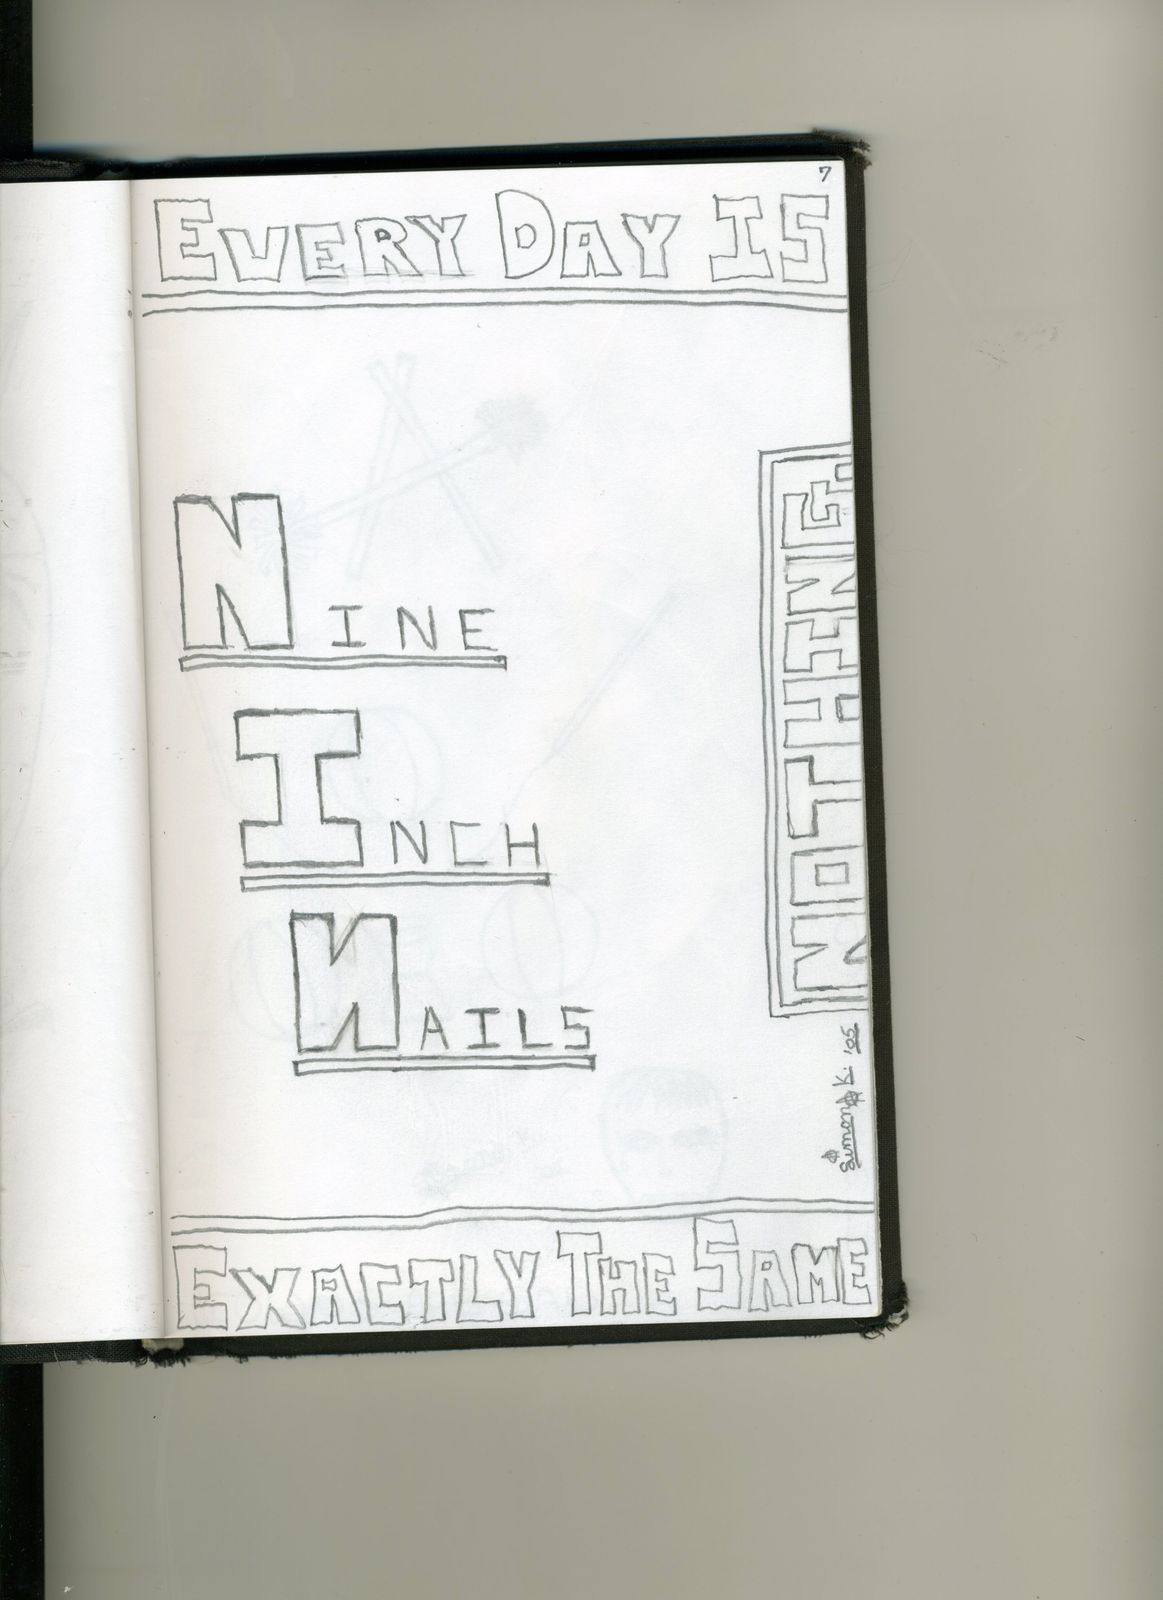 7
EVERY DAY IS
NINE
INCH
NAILS
NOTHING
Simon K. '05
EXACTLY THE SAME